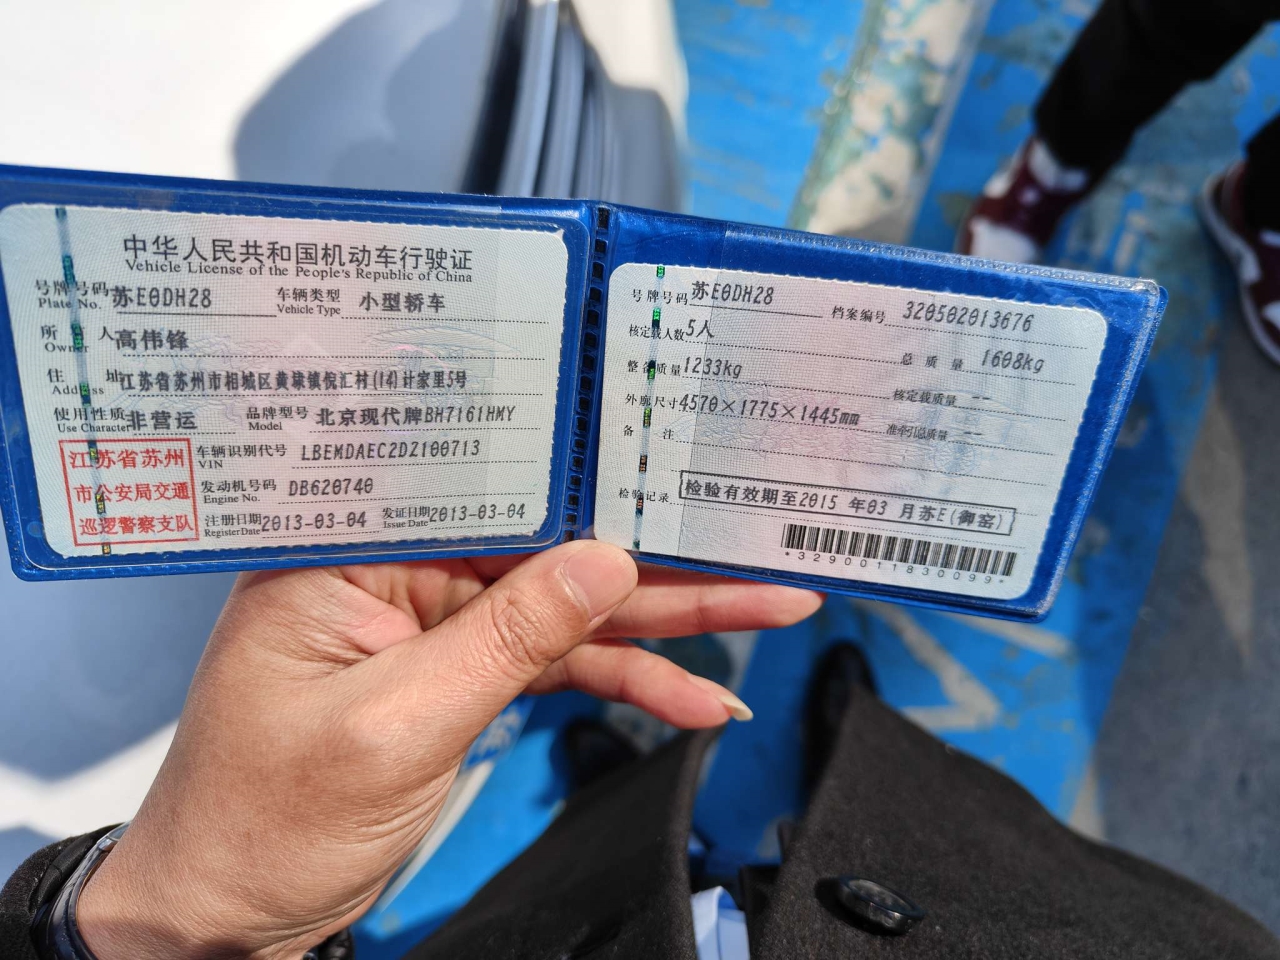 中华人民共和国机动车行驶证
Vehicle License of the People's Republic of China
号牌号码 苏E0DH28 车辆类型 小型轿车
Plate No. Vehicle Type
所有人 高伟锋
Owner
住址 江苏省苏州市相城区黄埭镇倪汇村(14)计家里5号
Address
使用性质 非营运 品牌型号 北京现代牌BH7161HMY
Use Character Model
江苏省苏州
市公安局交通
巡逻警察支队
车辆识别代号 LBEMDAEC2DZ100713
VIN
发动机号码 DB620740
Engine No.
注册日期 2013-03-04 发证日期 2013-03-04
Register Date Issue Date
号牌号码 苏E0DH28 档案编号 320502013676
核定载人数 5人 总质量 1608kg
整备质量 1233kg 核定载质量 --
外廓尺寸 4570×1775×1445mm 准牵引总质量 --
备注
检验记录 检验有效期至2015 年03 月苏E(御窑)
*3290011830099*